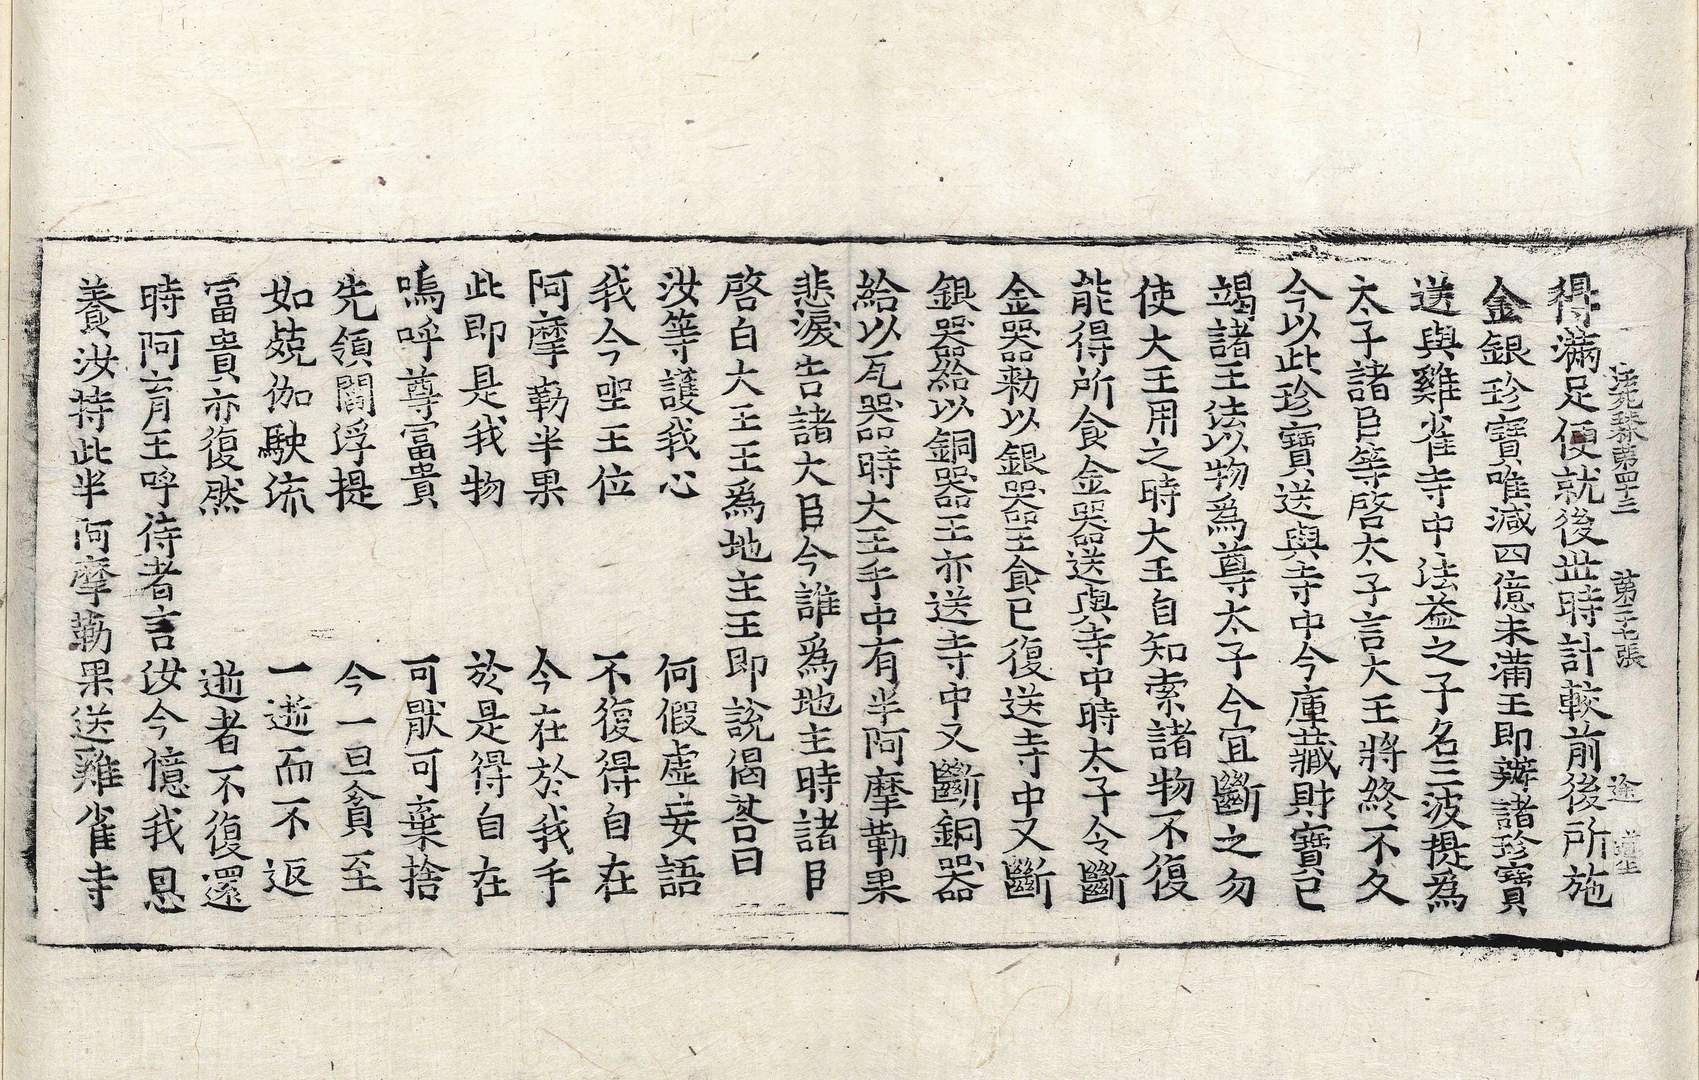 法苑珠林第四十三 第三十七張 途 道生
得滿足便就後世時計較前後所施
金銀珍寶唯減四億未滿王即辦諸珍寶
送與雞雀寺中法益之子名三波提爲
太子諸臣等啓太子言大王將終不久
今以此珍寶送與寺中今庫藏財寶已
竭諸王法以物爲尊太子今宜斷之勿
使大王用之時大王自知索諸物不復
能得所食金器送與寺中時太子令斷
金器勑以銀器王食已復送寺中又斷
銀器給以銅器王亦送寺中又斷銅器
給以瓦器時大王手中有半阿摩勒果
悲淚告諸大臣今誰爲地主時諸臣
啓白大王王爲地主王即說偈荅曰
汝等護我心 何假虛妄語
我今坐王位 不復得自在
阿摩勒半果 今在於我手
此即是我物 於是得自在
嗚呼尊富貴 可猒可棄捨
先領閻浮提 今一旦貧至
如兢伽駛流 一逝而不返
富貴亦復然 逝者不復還
時阿育王呼侍者言汝今憶我恩
養汝持此半阿摩勒果送雞雀寺